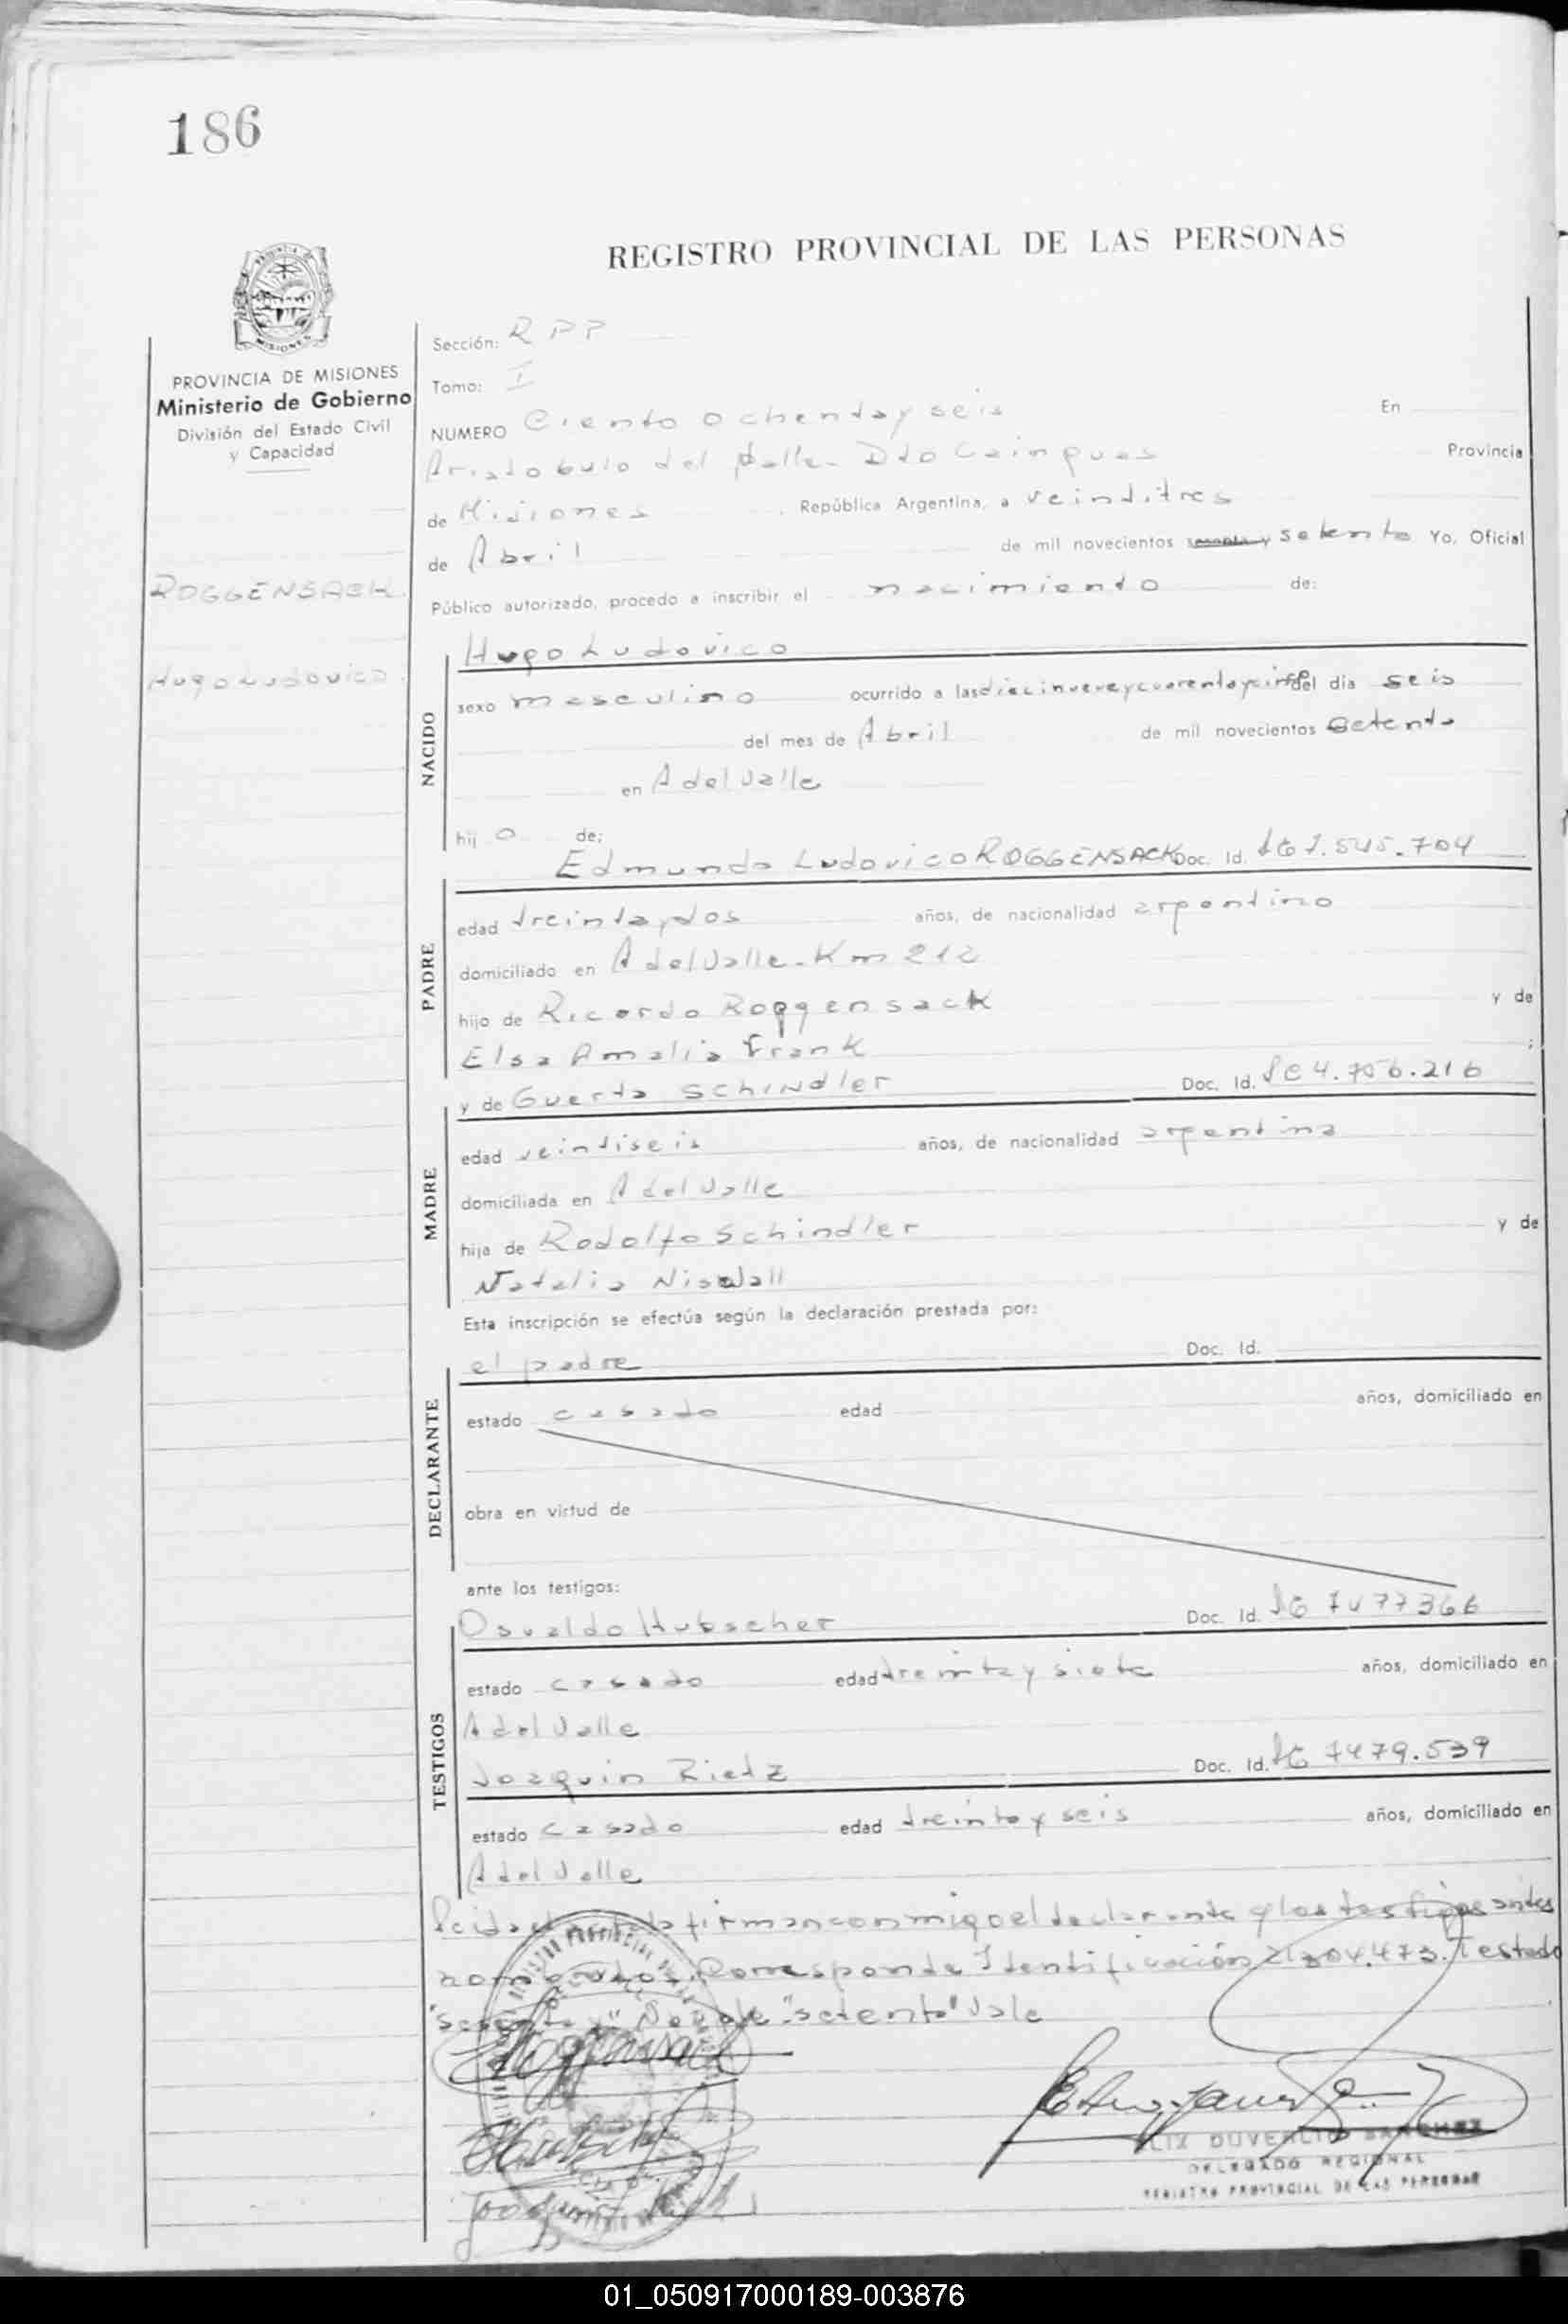 186
REGISTRO PROVINCIAL DE LAS PERSONAS
MISIONES
PROVINCIA DE MISIONES
Ministerio de Gobierno
División del Estado Civil
y Capacidad
ROGGENSACK
Hugo Ludovico
Sección: RPP
Tomo: I
NUMERO Ciento Ochenta y seis En
Aristobulo del Valle - Dto Cainguas Provincia
de Misiones República Argentina, a veintitres
de Abril de mil novecientos sesenta y setenta Yo, Oficial
Público autorizado, procedo a inscribir el nacimiento de:
NACIDO
Hugo Ludovico
sexo masculino ocurrido a las diecinueve y cuarenta y cinco del día seis
del mes de Abril de mil novecientos setenta
en A del Valle
hij o de:
PADRE
Edmundo Ludovico ROGGENSACK Doc. Id. 7.545.704
edad treinta y dos años, de nacionalidad argentino
domiciliado en A del Valle - Km 212
hijo de Ricardo Roggensack y de
Elsa Amalia Frank ;
MADRE
y de Guerta Schindler Doc. Id. 4.756.216
edad veintiseis años, de nacionalidad argentina
domiciliada en A del Valle
hija de Rodolfo Schindler y de
Natalia
Esta inscripción se efectúa según la declaración prestada por:
DECLARANTE
el padre Doc. Id.
estado casado edad años, domiciliado en
obra en virtud de
ante los testigos:
TESTIGOS
Osvaldo Hubscher Doc. Id. 7477366
estado casado edad treinta y siete años, domiciliado en
A del Valle
Joaquin Rietz Doc. Id. 7479.539
estado casado edad treinta y seis años, domiciliado en
A del Valle
Leida el acta la firman conmigo el declarante y los testigos antes
nombrados. Corresponde Identificación 21304.473. Testado
"sesenta y" No vale - "setenta" Vale
DUVERLIO SANCHEZ
DELEGADO REGIONAL
REGISTRO PROVINCIAL DE LAS PERSONAS
01_050917000189-003876